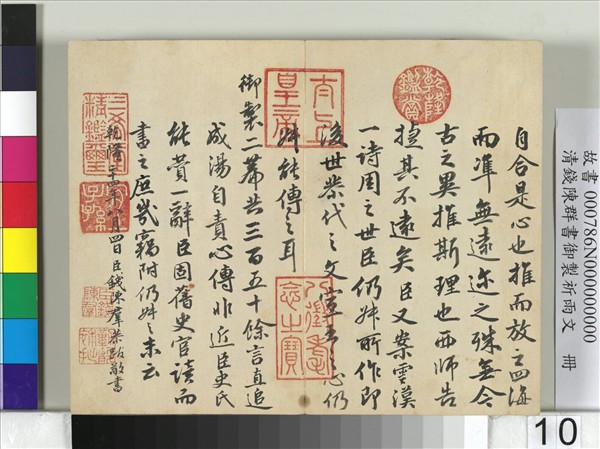 自合是心也推而放之四海
而準無遠迩之殊無今
古之異推斯理也西師告
捷其不遠矣臣又案雲漢
一詩周之世臣仍叔所作即
後世恭代之文之心仍
叔能傳之耳
御製二篇共三百五十餘言直追
成湯自責心傳非近臣史氏
能贊一辭臣固舊史官讀而
書之庶幾竊附仍叔之末云
乾隆年月四日臣錢陳羣恭跋敬書
乾隆鑑賞
太上皇帝
八徵耄念之寶
三希堂精鑑璽
宜子孫
故書 000786N000000000
清錢陳群書御製祈雨文 冊
10